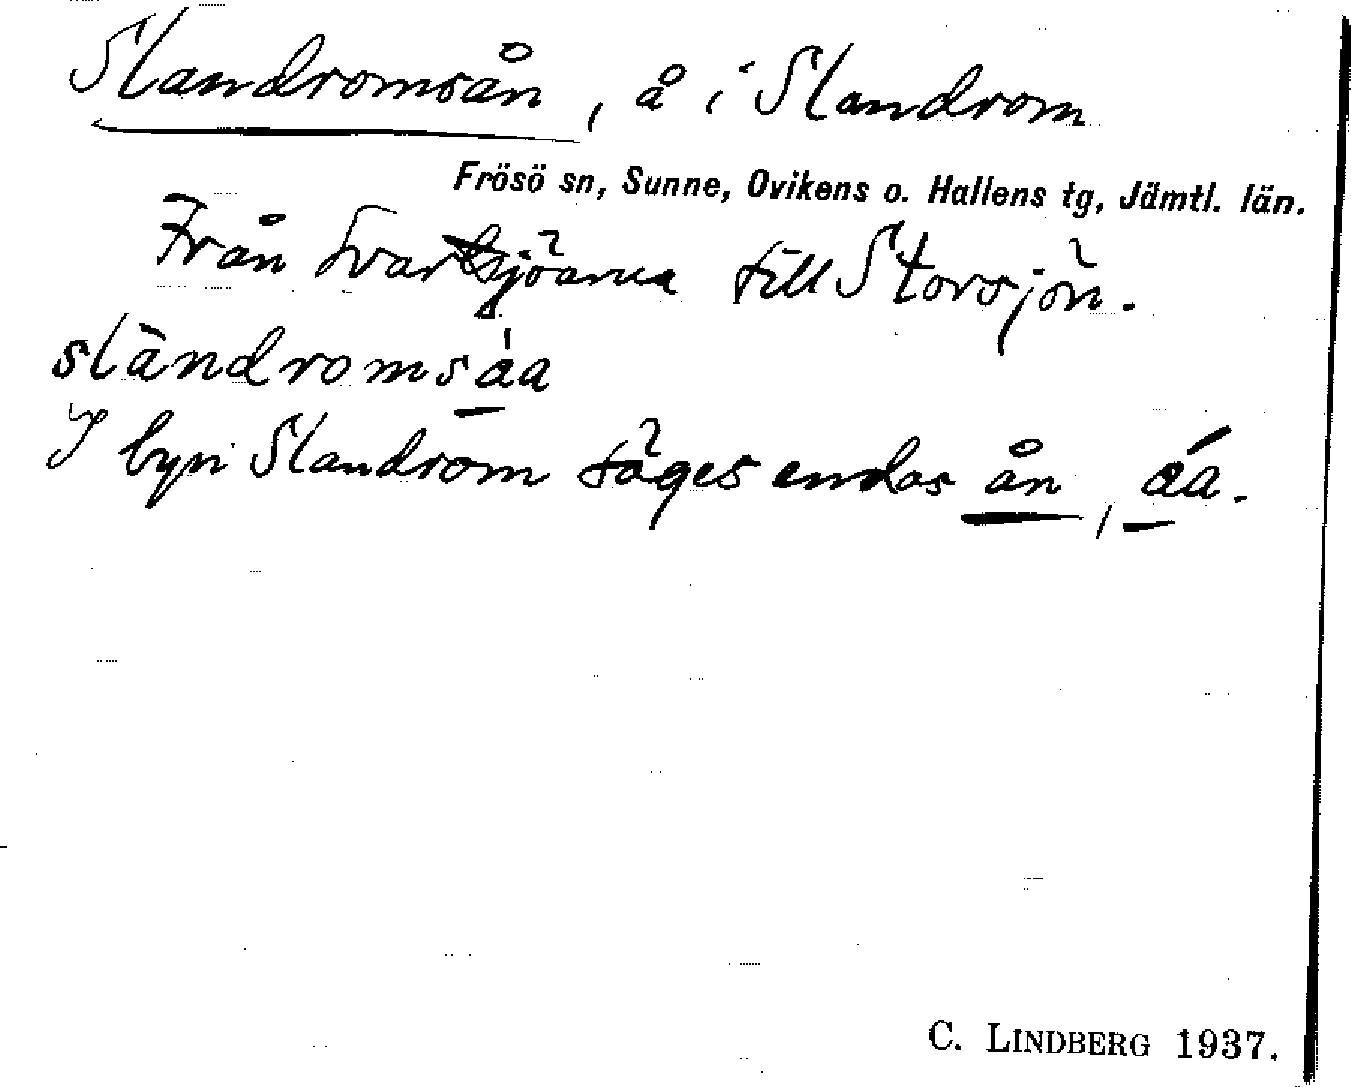 Slandromsån, å i Slandrom
Frösö sn, Sunne, Ovikens o. Hallens tg, Jämtl. län.
Från Svartsjöarna till Storsjön.
slàndromsáa
I byn Slandrom säges endas ån, áa.
C. LINDBERG 1937.